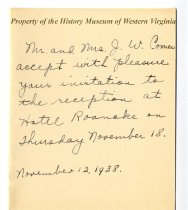 Property of the History Museum of Western Virginia
Mr and Mrs. J. W. Comer
accept with pleasure
your invitation to
the reception at
Hotel Roanoke on
Thursday November 18.
November 12, 1938.